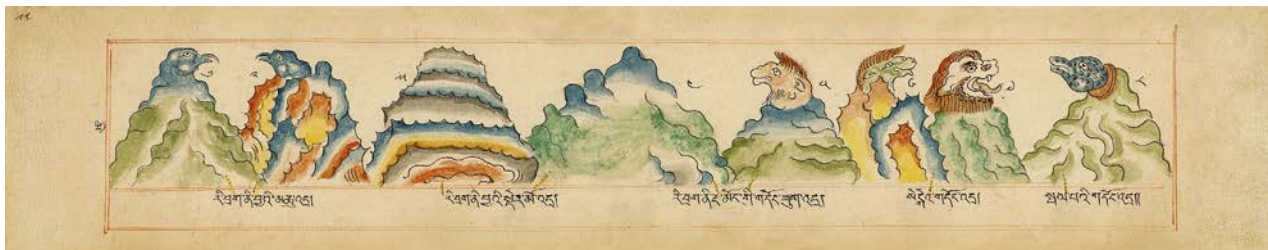 རི་བྲག་ནི་བྱའི་ འདྲ། རི་བྲག་ནི་བྱའི་སྡེར་མོ་འདྲ། རི་བྲག་ནི་རྔ་མོང་གི་གདོང་ཟུག་འདྲ། སེངྒེའི་གདོང་འདྲ། སྦལ་པའི་གདོང་འདྲ།།